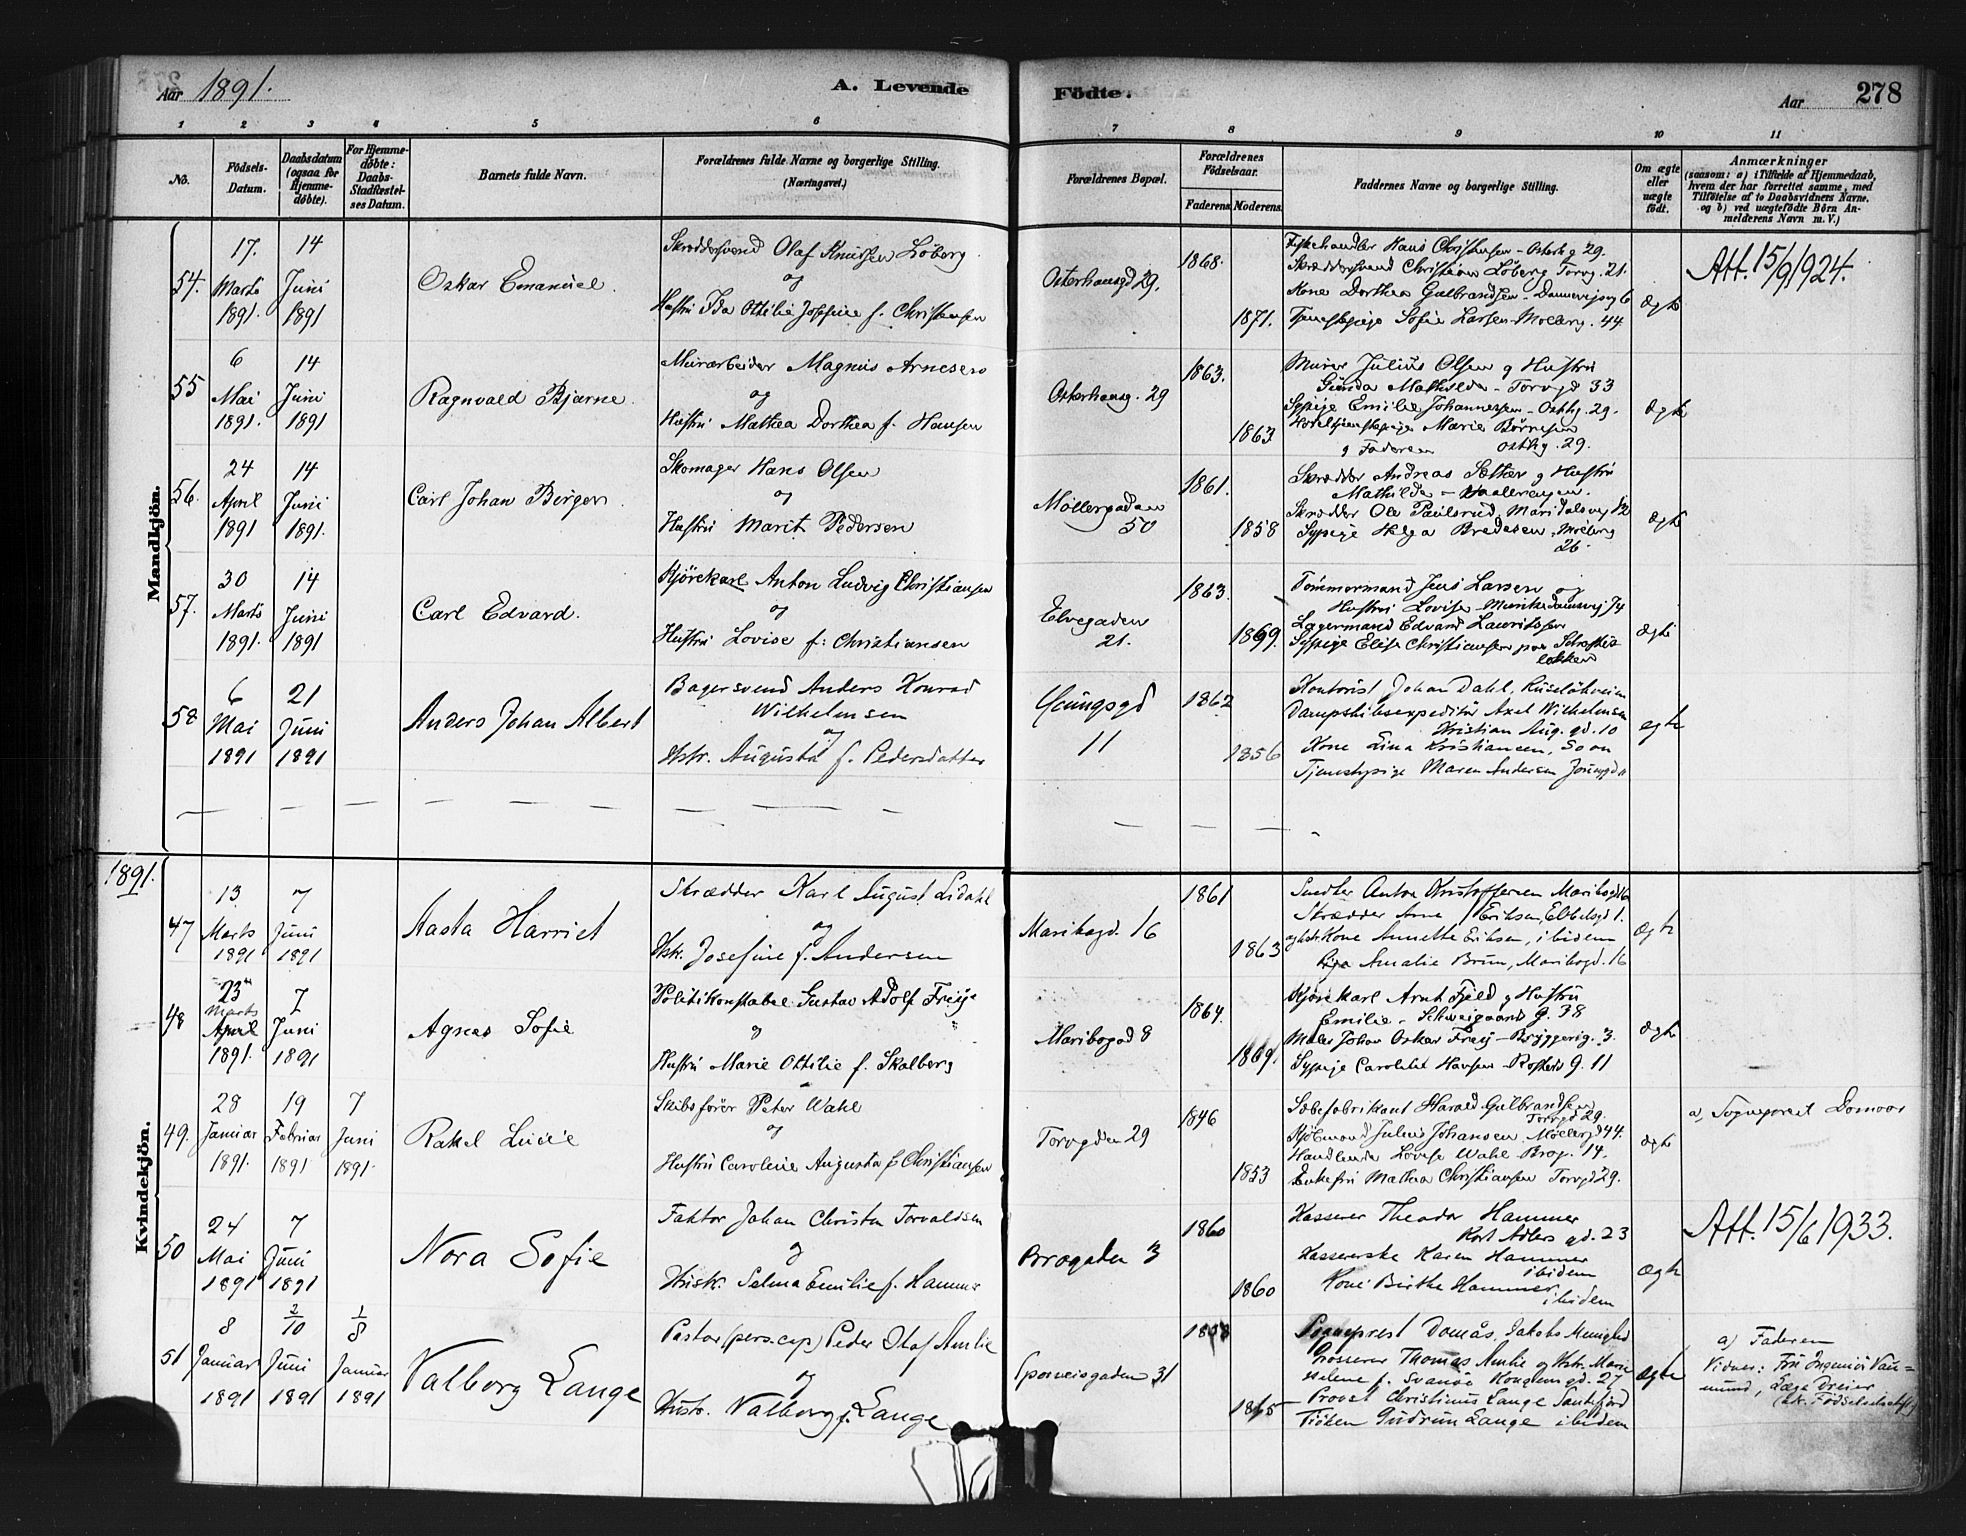 Aar 1891.
A. Levende
Födte.
Aar
278
1 2 3 4 5 6 7 8 9 10 11
No.
Födsels-
Datum.
Daabsdatum
(ogsaa for
Hjemme-
döbte).
For Hjemme-
döbte:
Daabs-
Stadfæstel-
ses Datum.
Barnets fulde Navn.
Forældrenes fulde Navne og borgerlige Stilling.
(Næringsvei.)
Forældrenes Bopæl.
Forældrenes
Födselsaar.
Faderens. Moderens.
Faddernes Navne og borgerlige Stilling.
Om ægte
eller
uægte
födt.
Anmærkninger
(saasom: a) i Tilfælde af Hjemmedaab,
hvem der har forrettet samme, med
Tilföielse af to Daabsvidners Navne.
og b) ved uægtefödte Börn An-
melderens Navn m. V.)
Mandkjön.
54.
17.
Marts
1891.
14
Juni
1891
Oskar Emanuel.
Skræddersvend Olaf Knudsen Löberg
og
Hustru Ida Ottilie Josefine f. Christensen
Osterhausgd 29.
1868.
1871.
Fiskehandler Hans Christensen - Osterhg 29.
Skræddersvend Christian Löberg Torvg. 21.
Kone Dorthea Gulbrandsen - Dannevigsvg 6
Tjenestepige Sofie Larsen - Möllerg. 44
Ægte
Att. 15/9 1924.
55
6
Mai
1891.
14
Juni
1891
Ragnvald Bjarne.
Murarbeider Magnus Arnesen
og
Hustru Mathea Dorthea f. Hansen
Osterhausg. 29
1863.
1863
Murer Julius Olsen g Hustru
Gunda Mathilde - Torvgd 33
Sypige Emilie Johannessen - Osthg. 29.
Marie
g Faderen Osthg. 29.
Ægte
56.
24
April
1891
14
Juni
1891.
Carl Johan Birger
Skomager Hans Olsen
og
Hustru Marit Pedersen
Möllergaden
50
1861.
1858
Skrædder Andreas Sæther g Hustru
Mathilde - Vaalerengen.
Skrædder Ole Paulsrud, Maridalsvg 12
Sypige Helga Bredesen, Möllerg
26.
Ægte
57.
30
Marts
1891.
14
Juni
1891
Carl Edvard.
Kjörekarl Anton Ludvig Christiansen
og
Hustru Lovise f: Christiansen
Elvegaden
21.
1863.
1869.
Tömmermand Jens Larsen og
Hustru Lovise - Munkedamsvej 74
Lagermand Edvard Lauritssen
Sypige Elise Christiansen
lökken
Ægte
58
6
Mai
1891
21
Juni
1891
Anders Johan Albert
Bagersvend Anders Konrad
Wilhelmsen
og
Hstr. Augusta f. Pedersdatter
Youngsgd
11
1862
1856
Kontorist Johan Dahl, Ruselökveien
Dampskibsexpeditör Axel Wilhelmsen
Kristian Aug. gd. 10
Kone Lina Kristiansen, Soon
Tjenestepige Maren Andersen Youngsgd 11
ægte
1891.
Kvindekjön.
47
13.
Marts
1891
7
Juni
1891
Aasta Harriet
Skrædder Karl August Lidahl
og
Hstr. Josefine f. Andersen
Maribogd. 16
1861
1863
Snedker Anton Kristoffersen Maribogd 16
Skrædder Arne Eriksen, Ebbelsgd 1.
Kone Annette Eriksen, ibidem
Pige Amalie Brun, Maribogd. 16
Ægte
48
23
Marts
April
1891.
7
Juni
1891
Agnes Sofie
Politikonstabel Gustav Adolf Freij
g
Hustru Marie Ottilie f. Skalberg
Maribogad 8
1864.
1869.
Kjörekarl Arnt Fjeld g Hustru
Emilie - Schweigaards g. 38
Maler Johan Oskar Freij - Bryggerig. 3.
Sypige Caroline Hansen - Rosteds g. 11
Ægte
49.
28
Januar
1891.
19
Februar
1891
7
Juni
1891.
Rakel Lucie
Skibsförer Peter Wahl
og
Hustru Caroline Augusta f. Christiansen
Torvgaden 29
1846
1853
Sæbefabrikant Harald Gulbrandsen
Torvgd 29.
Kjöbmand Julius Johansen, Möllergd 44.
Handlende Lovise Wahl Brog. 14.
Enkefru Mathea Christiansen Torvgd 29.
Ægte
a, Sogneprest Domaas
50
24
Mai
1891
7
Juni
1891
Nora Sofie
Faktor Johan Christen Torvaldsen
g
Hustr. Selma Emilie f. Hammer
Brogaden 3
1860
1860
Kasserer Theodor Hammer
Kort Adlers gd. 23
Kassererske Karen Hammer
ibidem
Kone Birthe Hammer
ibidem
Ægte
Att. 15/6 1933.
51
8
Januar
1891
2/10
Juni
1891
1/8
Januar
1891
Valborg Lange
Pastor (pers. cap) Peder Olaf Amlie
og
Hustr. Valborg f. Lange
Sporveisgaden 31
1858
1865
Sogneprest Domås, Jakobs Menighed
Grosserer Thomas Amlie og Hstr. Marie
Helene f. Svanöe Kongens gd. 27
Provst Christinus Lange Sandefjord
Fröken Gudrun Lange ibidem
ægte
a) Faderen
Vidner: Fru Ingeniör Vau=
mund, Læge Dreier